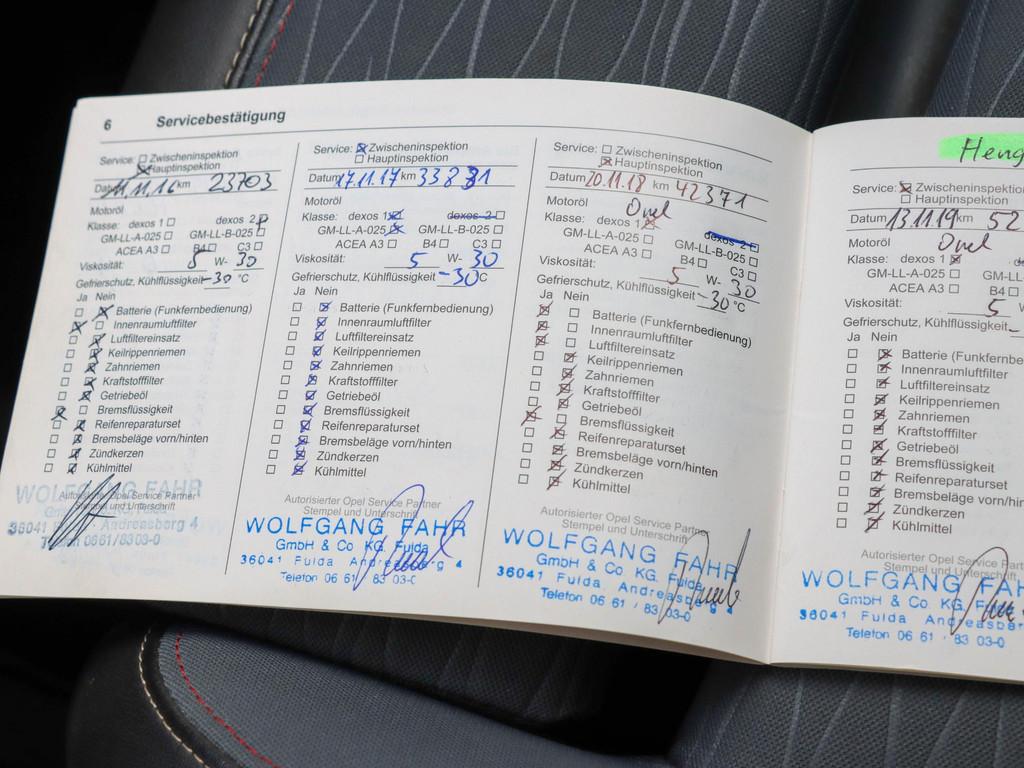 6 Servicebestätigung
Service: Zwischeninspektion
Hauptinspektion
Datum 11.11.16 km 23703
Motoröl
Klasse: dexos 1 dexos 2
GM-LL-A-025 GM-LL-B-025
ACEA A3 B4 C3
Viskosität: 5 W- 30
Gefrierschutz, Kühlflüssigkeit -30 °C
Ja Nein
Batterie (Funkfernbedienung)
Innenraumluftfilter
Luftfiltereinsatz
Keilrippenriemen
Zahnriemen
Kraftstofffilter
Getriebeöl
Bremsflüssigkeit
Reifenreparaturset
Bremsbeläge vorn/hinten
Zündkerzen
Kühlmittel
Autorisierter Opel Service Partner
Stempel und Unterschrift
WOLFGANG FAHR
36041 Andreasberg 4
Telefon 0661/8303-0
Service: Zwischeninspektion
Hauptinspektion
Datum 17.11.17 km 33831
Motoröl
Klasse: dexos 1 dexos 2
GM-LL-A-025 GM-LL-B-025
ACEA A3 B4 C3
Viskosität: 5 W- 30
Gefrierschutz, Kühlflüssigkeit -30 °C
Ja Nein
Batterie (Funkfernbedienung)
Innenraumluftfilter
Luftfiltereinsatz
Keilrippenriemen
Zahnriemen
Kraftstofffilter
Getriebeöl
Bremsflüssigkeit
Reifenreparaturset
Bremsbeläge vorn/hinten
Zündkerzen
Kühlmittel
Autorisierter Opel Service Partner
Stempel und Unterschrift
WOLFGANG FAHR
GmbH & Co. KG. Fulda
36041 Fulda, Andreasberg 4
Telefon 06 61 / 83 03-0
Service: Zwischeninspektion
Hauptinspektion
Datum 20.11.18 km 42371
Motoröl Opel
Klasse: dexos 1 dexos 2
GM-LL-A-025 GM-LL-B-025
ACEA A3 B4 C3
Viskosität: 5 W- 30
Gefrierschutz, Kühlflüssigkeit -30 °C
Ja Nein
Batterie (Funkfernbedienung)
Innenraumluftfilter
Luftfiltereinsatz
Keilrippenriemen
Zahnriemen
Kraftstofffilter
Getriebeöl
Bremsflüssigkeit
Reifenreparaturset
Bremsbeläge vorn/hinten
Zündkerzen
Kühlmittel
Autorisierter Opel Service Partner
Stempel und Unterschrift
WOLFGANG FAHR
GmbH & Co. KG. Fulda
36041 Fulda, Andreasberg 4
Telefon 06 61 / 83 03-0
Heng
Service: Zwischeninspektio
Hauptinspektion
Datum 13.11.19 km 52
Motoröl Opel
Klasse: dexos 1
GM-LL-A-025 GM-L
ACEA A3 B4
Viskosität: 5
Gefrierschutz, Kühlflüssigkeit -
Ja Nein
Batterie (Funkfernbe
Innenraumluftfilter
Luftfiltereinsatz
Keilrippenriemen
Zahnriemen
Kraftstofffilter
Getriebeöl
Bremsflüssigkeit
Reifenreparaturset
Bremsbeläge vorn/hin
Zündkerzen
Kühlmittel
Autorisierter Opel Service
Stempel und Untersch
WOLFGANG FAH
GmbH & Co. KG. F
36041 Fulda, Andreasber
Telefon 06 61 / 83 03-0